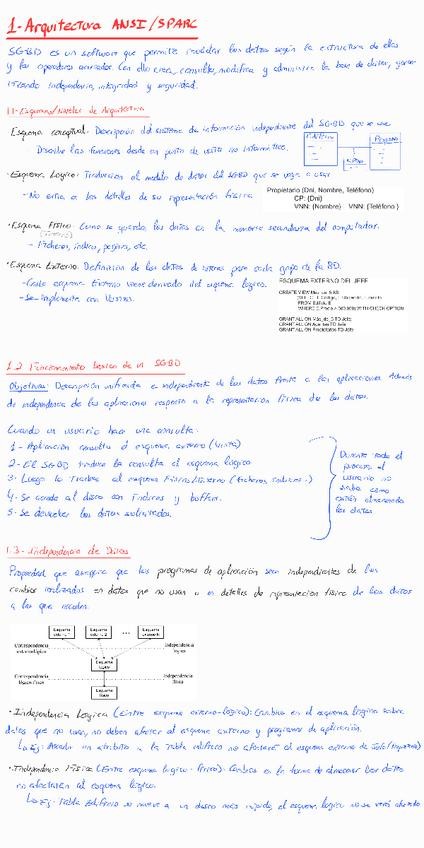 1-Arquitectura ANSI/SPARC
SGBD es un software que permite modelar los datos según la estructura de ellos
y los operadores asociados. Con ello crea, consulta, modifica y administra la base de datos, garan
tizando independencia, integridad y seguridad.
1.1-Esquemas/Niveles de Arquitectura
Esquema conceptual: Descripción del sistema de información independiente del SGBD que se use
Describe las funciones desde un punto de vista no informático.
·Esquema Logico: Traducción al modelo de datos del SGBD que se vaya a usar
-No entra en los detalles de su representación física
Propietario (Dni, Nombre, Teléfono)
CP: {Dni}
VNN: {Nombre} VNN: {Teléfono}
·Esquema Físico: Como se guardan los datos en la memoria secundaria del computador.
- Ficheros, indices, paginas, etc.
·Esquema Externo: Definición de los datos de interes para cada grupo de la BD.
-Cada esquema Externo viene derivado del esquema logico.
-Se implementa con Vistas.
ESQUEMA EXTERNO DEL JEFE
1.2 Funcionamiento básico de un SGBD
Objetivo: Descripción unificada e independiente de los datos frente a las aplicaciones Además
de independencia de las aplicaciones respecto a la representacion física de los datos.
Cuando un usuario hace una consulta:
1- Aplicación consulta el esquema externo (Vista)
2- El SGBD traduce la consulta al esquema logico
3- Luego la traduce al esquema Físico/Interno (ficheros indices..)
4- Se accede al disco con Indices y buffers.
5- Se devuelven los datos solicitados.
Durante todo el
proceso el
usuario no
sabe como
están almacenados
los datos
1.3- Independencia de Datos
Propiedad que asegura que los programas de aplicación sean independientes de los
cambios realizados en datos que no usan o en detalles de representacion física de los datos
a los que acceden.
Esquema externo 1 Esquema externo 2 ...
Correspondencia
Independencia lógica
Esquema lógico
Correspondencia
Independencia física
Esquema físico
·Independencia Logica (Entre esquema externo-logico): Cambios en el esquema lógico sobre
datos que no usan, no deben afectar al esquema externo y programas de aplicación.
Ej: Añadir un atributo a la tabla edificio no afectará al esquema externo de
·Independencia Física (Entre esquema logico - físico)- Cambios en la forma de almacenar los datos
no afectarían al esquema lógico.
Ej- Tabla Edificio se mueve a un disco más rapido, el esquema logico no se verá afectado